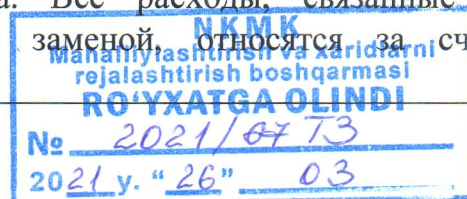 Все расходы, связанные
заменой, относятся за сч
NKMK
Mahalliylashtirish va xaridlarni
rejalashtirish boshqarmasi
RO‘YXATGA OLINDI
№ 2021/67 ТЗ
2021 y. “26” 03